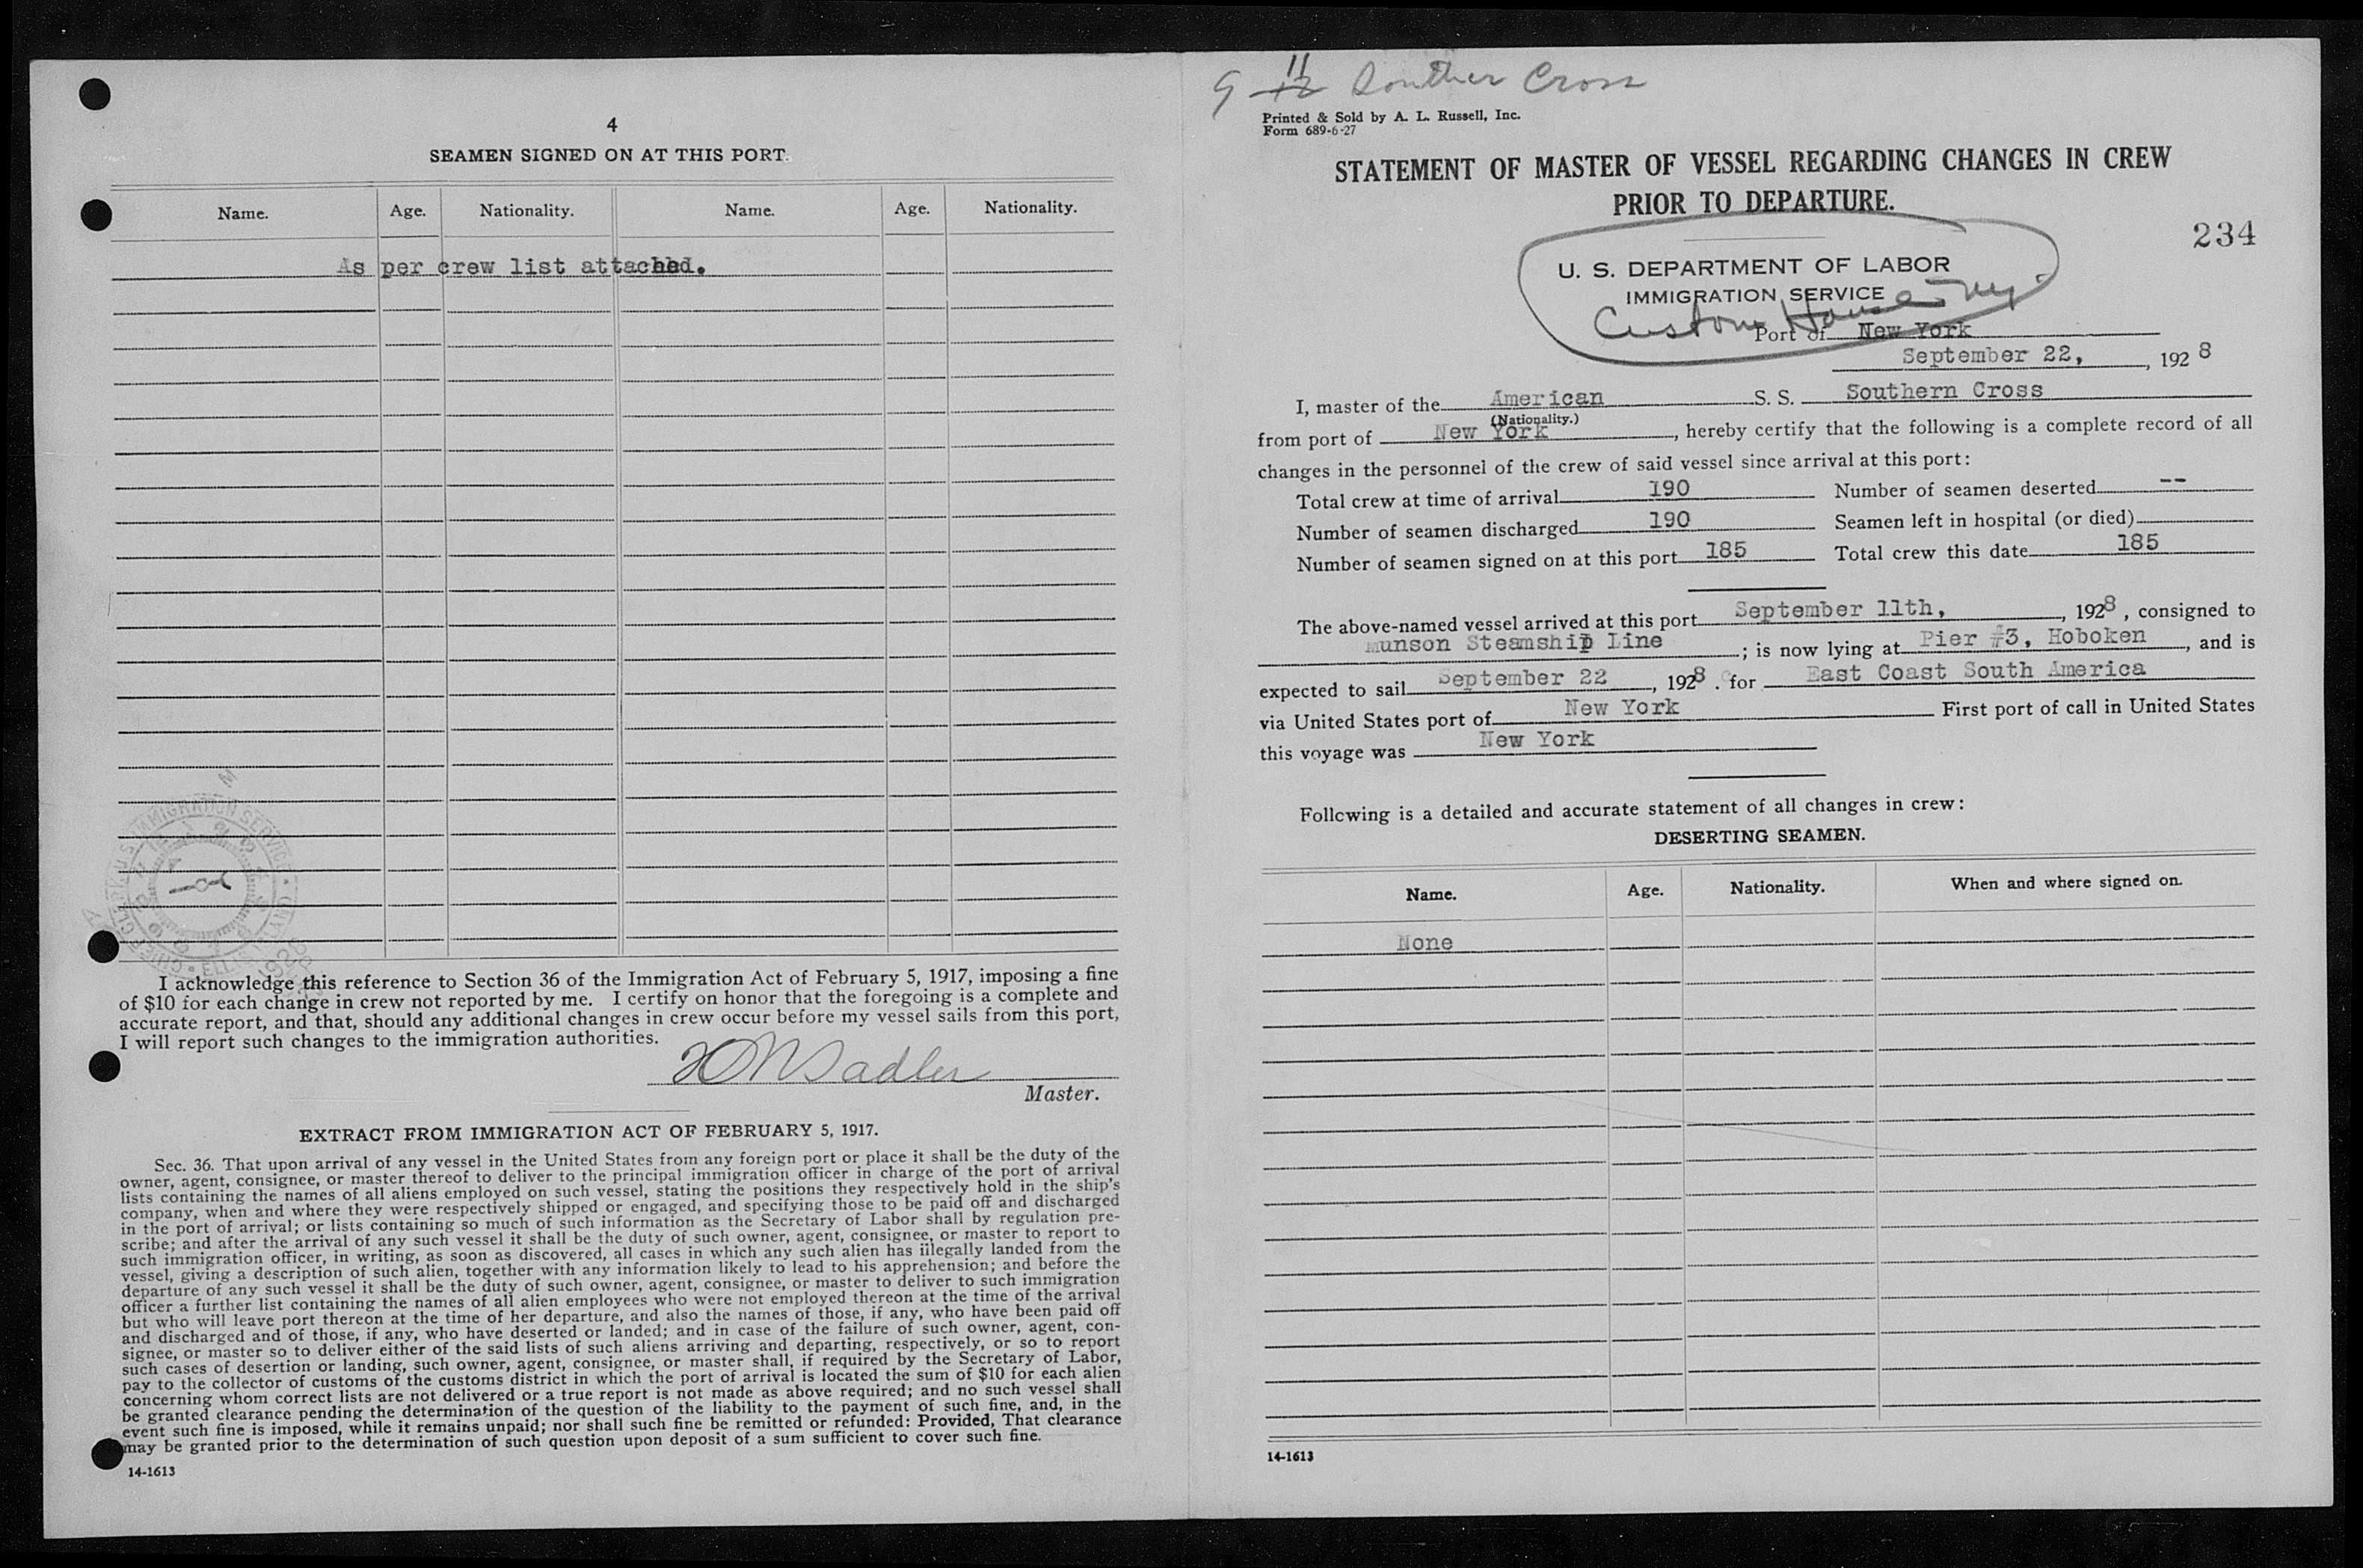 4
SEAMEN SIGNED ON AT THIS PORT.
Name. Age. Nationality. Name. Age. Nationality.
As per crew list attached.
I acknowledge this reference to Section 36 of the Immigration Act of February 5, 1917, imposing a fine
of $10 for each change in crew not reported by me. I certify on honor that the foregoing is a complete and
accurate report, and that, should any additional changes in crew occur before my vessel sails from this port,
I will report such changes to the immigration authorities.
Sadler
Master.
EXTRACT FROM IMMIGRATION ACT OF FEBRUARY 5, 1917.
Sec. 36. That upon arrival of any vessel in the United States from any foreign port or place it shall be the duty of the
owner, agent, consignee, or master thereof to deliver to the principal immigration officer in charge of the port of arrival
lists containing the names of all aliens employed on such vessel, stating the positions they respectively hold in the ship's
company, when and where they were respectively shipped or engaged, and specifying those to be paid off and discharged
in the port of arrival; or lists containing so much of such information as the Secretary of Labor shall by regulation pre-
scribe; and after the arrival of any such vessel it shall be the duty of such owner, agent, consignee, or master to report to
such immigration officer, in writing, as soon as discovered, all cases in which any such alien has illegally landed from the
vessel, giving a description of such alien, together with any information likely to lead to his apprehension; and before the
departure of any such vessel it shall be the duty of such owner, agent, consignee, or master to deliver to such immigration
officer a further list containing the names of all alien employees who were not employed thereon at the time of the arrival
but who will leave port thereon at the time of her departure, and also the names of those, if any, who have been paid off
and discharged and of those, if any, who have deserted or landed; and in case of the failure of such owner, agent, con-
signee, or master so to deliver either of the said lists of such aliens arriving and departing, respectively, or so to report
such cases of desertion or landing, such owner, agent, consignee, or master shall, if required by the Secretary of Labor,
pay to the collector of customs of the customs district in which the port of arrival is located the sum of $10 for each alien
concerning whom correct lists are not delivered or a true report is not made as above required; and no such vessel shall
be granted clearance pending the determination of the question of the liability to the payment of such fine, and, in the
event such fine is imposed, while it remains unpaid; nor shall such fine be remitted or refunded: Provided, That clearance
may be granted prior to the determination of such question upon deposit of a sum sufficient to cover such fine.
14-1613
9 11 12 Souther Cross
Printed & Sold by A. L. Russell, Inc.
Form 689-6-27
STATEMENT OF MASTER OF VESSEL REGARDING CHANGES IN CREW
PRIOR TO DEPARTURE.
234
U. S. DEPARTMENT OF LABOR
IMMIGRATION SERVICE
Custom House
Port of New York
September 22, , 1928
I, master of the American S. S. Southern Cross
(Nationality.)
from port of New York , hereby certify that the following is a complete record of all
changes in the personnel of the crew of said vessel since arrival at this port:
Total crew at time of arrival 190 Number of seamen deserted --
Number of seamen discharged 190 Seamen left in hospital (or died)
Number of seamen signed on at this port 185 Total crew this date 185
The above-named vessel arrived at this port September 11th, , 1928 , consigned to
Munson Steamship Line ; is now lying at Pier #3, Hoboken , and is
expected to sail September 22 , 1928 . for East Coast South America
via United States port of New York First port of call in United States
this voyage was New York
Following is a detailed and accurate statement of all changes in crew:
DESERTING SEAMEN.
Name. Age. Nationality. When and where signed on.
None
14-1613